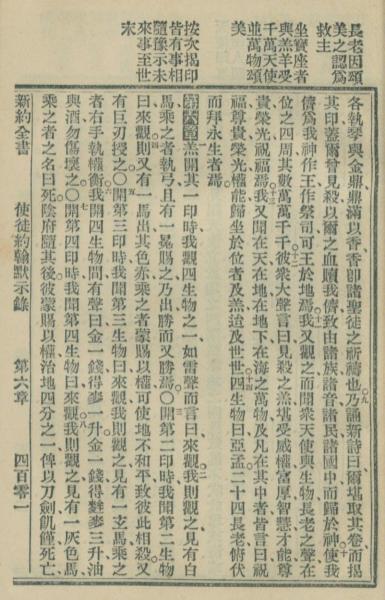 長老因頌
美之認為
救主
坐寶座者
與羔羊受
千萬天使
並萬物頌
美
按次揭印
皆有事相
隨豫示未
來事至世
末
各執琴與金鼎鼎滿以香香卽諸聖徒之祈禱也九乃誦新詩曰爾堪取其卷而揭
其印蓋爾曾見殺以爾之血贖我儕致由諸族諸音諸民諸國中而歸於神十使我
儕為我神作王作祭司可王於地焉十一我又觀之而聞衆天使與生物長老之聲在
位之四周其數萬萬千千十二彼衆大聲言曰見殺之羔堪受威權富厚智慧才能尊
貴榮光祝福焉十三我又聞在天在地在地下在海之萬物及凡在其中者皆言曰祝
福尊貴榮光權能歸坐於位者及羔迨及世世十四四生物曰亞孟二十四長老俯伏
而拜永生者焉
第六章羔開其一印時我觀四生物之一如雷聲而言曰來觀二我則觀之見有白
馬乘之者執弓且有一冕賜之乃出勝而又勝焉○三開第二印時我聞第二生物
曰來觀四則又有一馬出其色赤乘之者蒙賜以權可使地不和平致彼此相殺又
有巨刃授之○五開第三印時我聞第三生物曰來觀我則觀之見有一玄馬乘之
者右手執權衡六我聞四生物間有聲曰金一錢得麥一升金一錢得麰麥三升油
與酒勿傷壞之○七開第四印時我聞第四生物曰來觀八我則觀之見有一灰色馬
乘之者之名曰死陰府隨其後彼蒙賜以權治地四分之一俾以刀劍飢饉死亡
新約全書 使徒約翰默示錄 第六章 四百零一